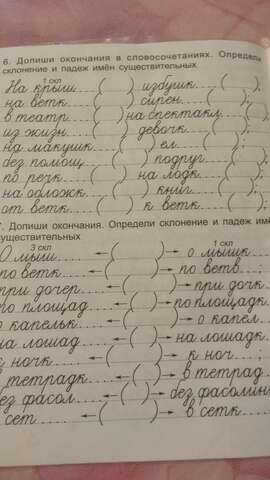 6. Допиши окончания в словосочетаниях. Определи
склонение и падеж имён существительных
1 скл
На крыш.....( ) избушк.....( );
на ветк.....( ) сирен.....( );
в театр.....( ) на спектакл.....( );
из жизн.....( ) девочк.....( );
на макушк.....( ) ел.....( );
без помощ.....( ) подруг.....( );
по рек.....( ) на лодк.....( );
на обложк.....( ) книг.....( );
от ветк.....( ) к ветк.....( );
7. Допиши окончания. Определи склонение и падеж имён
существительных
3 скл 1 скл
О мыш.....←( )→ о мышк
по ветк.....←( )→ по ветв.....;
при дочер.....←( )→ при дочк
по площад.....←( )→ по площадк
о капельк.....←( )→ о капел.....
на лошад.....←( )→ на лошадк
к ночк.....←( )→ к ноч.....;
в тетрадк.....←( )→ в тетрад
без фасол.....←( )→ без фасолин
в сет.....←( )→ в сетк.....